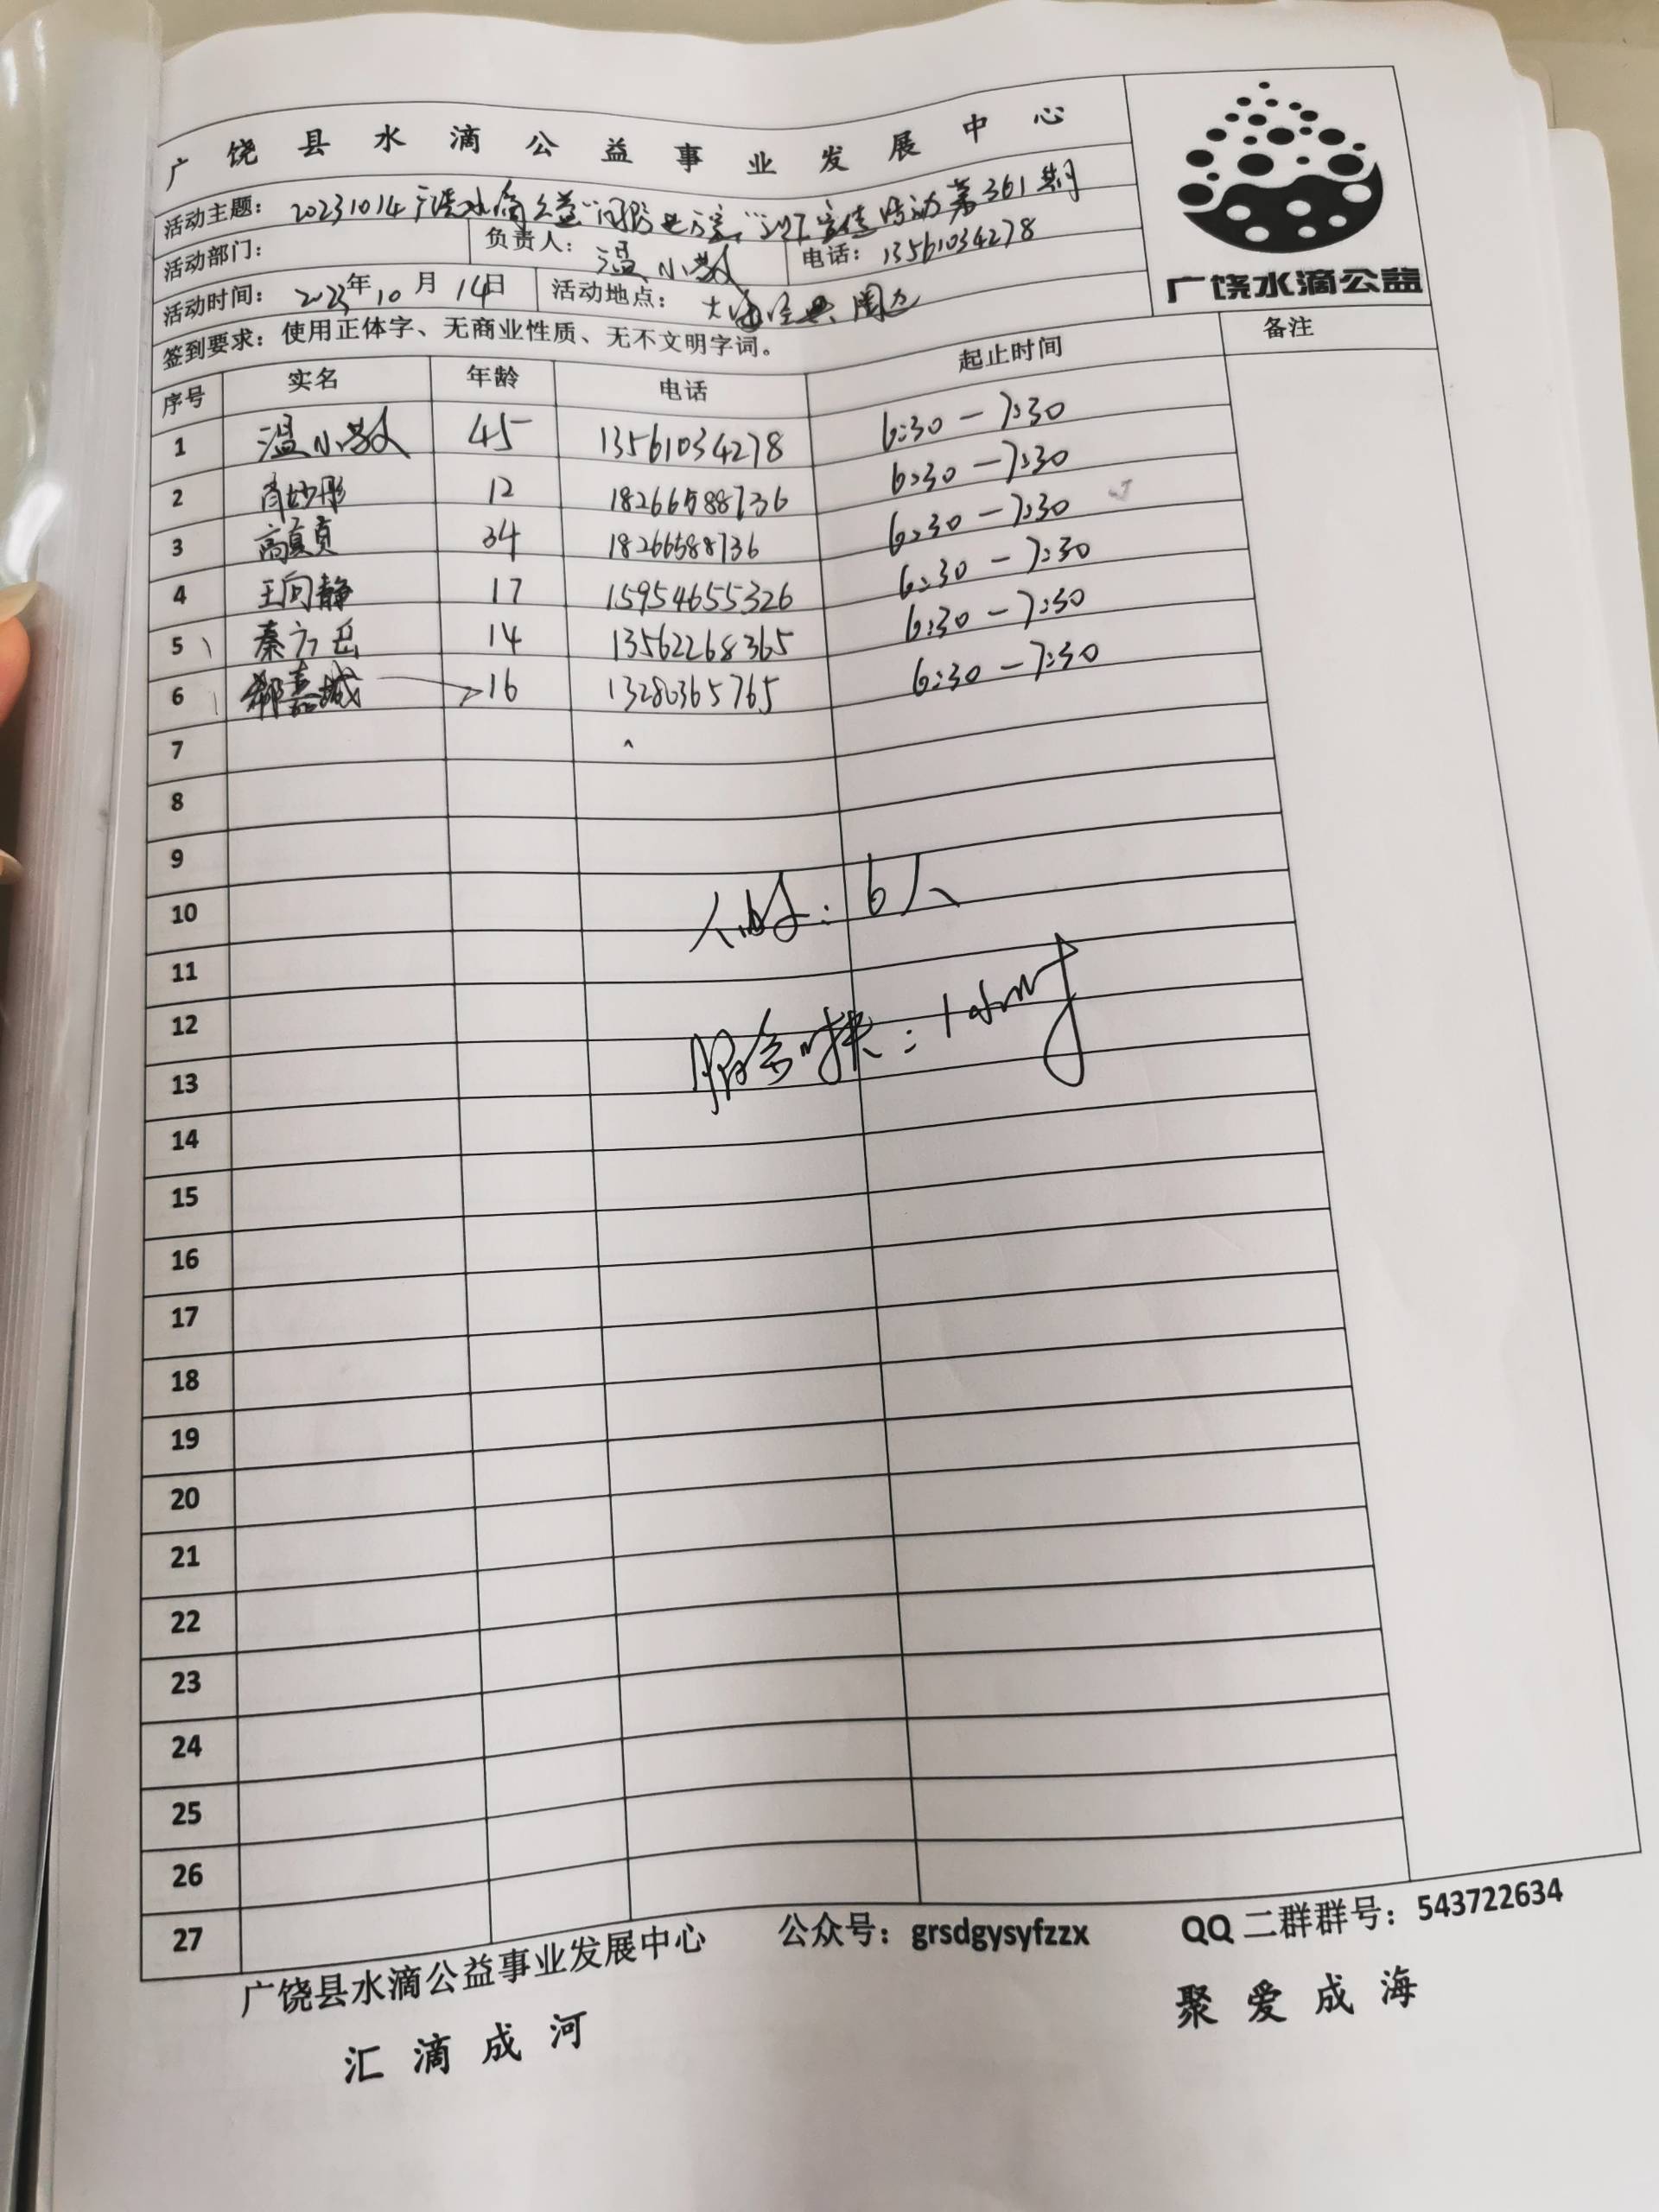 广饶县水滴公益事业发展中心
广饶水滴公益
活动主题：20231014广饶水滴公益"宣传活动第361期
活动部门： 负责人：温小 电话：13561034278
活动时间：2023年10月14日 活动地点：大海经典周边
签到要求：使用正体字、无商业性质、无不文明字词。
序号 实名 年龄 电话 起止时间 备注
1 温小 45 13561034278 6:30-7:30
2 肖妙彤 12 18266588736 6:30-7:30
3 高真真 34 18266588736 6:30-7:30
4 王向静 17 15954655326 6:30-7:30
5 秦方岳 14 13562268365 6:30-7:30
6 嘉城 16 13280365765 6:30-7:30
7
8
9
10 人数：6人
11
12
13 服务时长：1小时
14
15
16
17
18
19
20
21
22
23
24
25
26
27
广饶县水滴公益事业发展中心 公众号：grsdgysyfzzx QQ二群群号：543722634
汇滴成河 聚爱成海